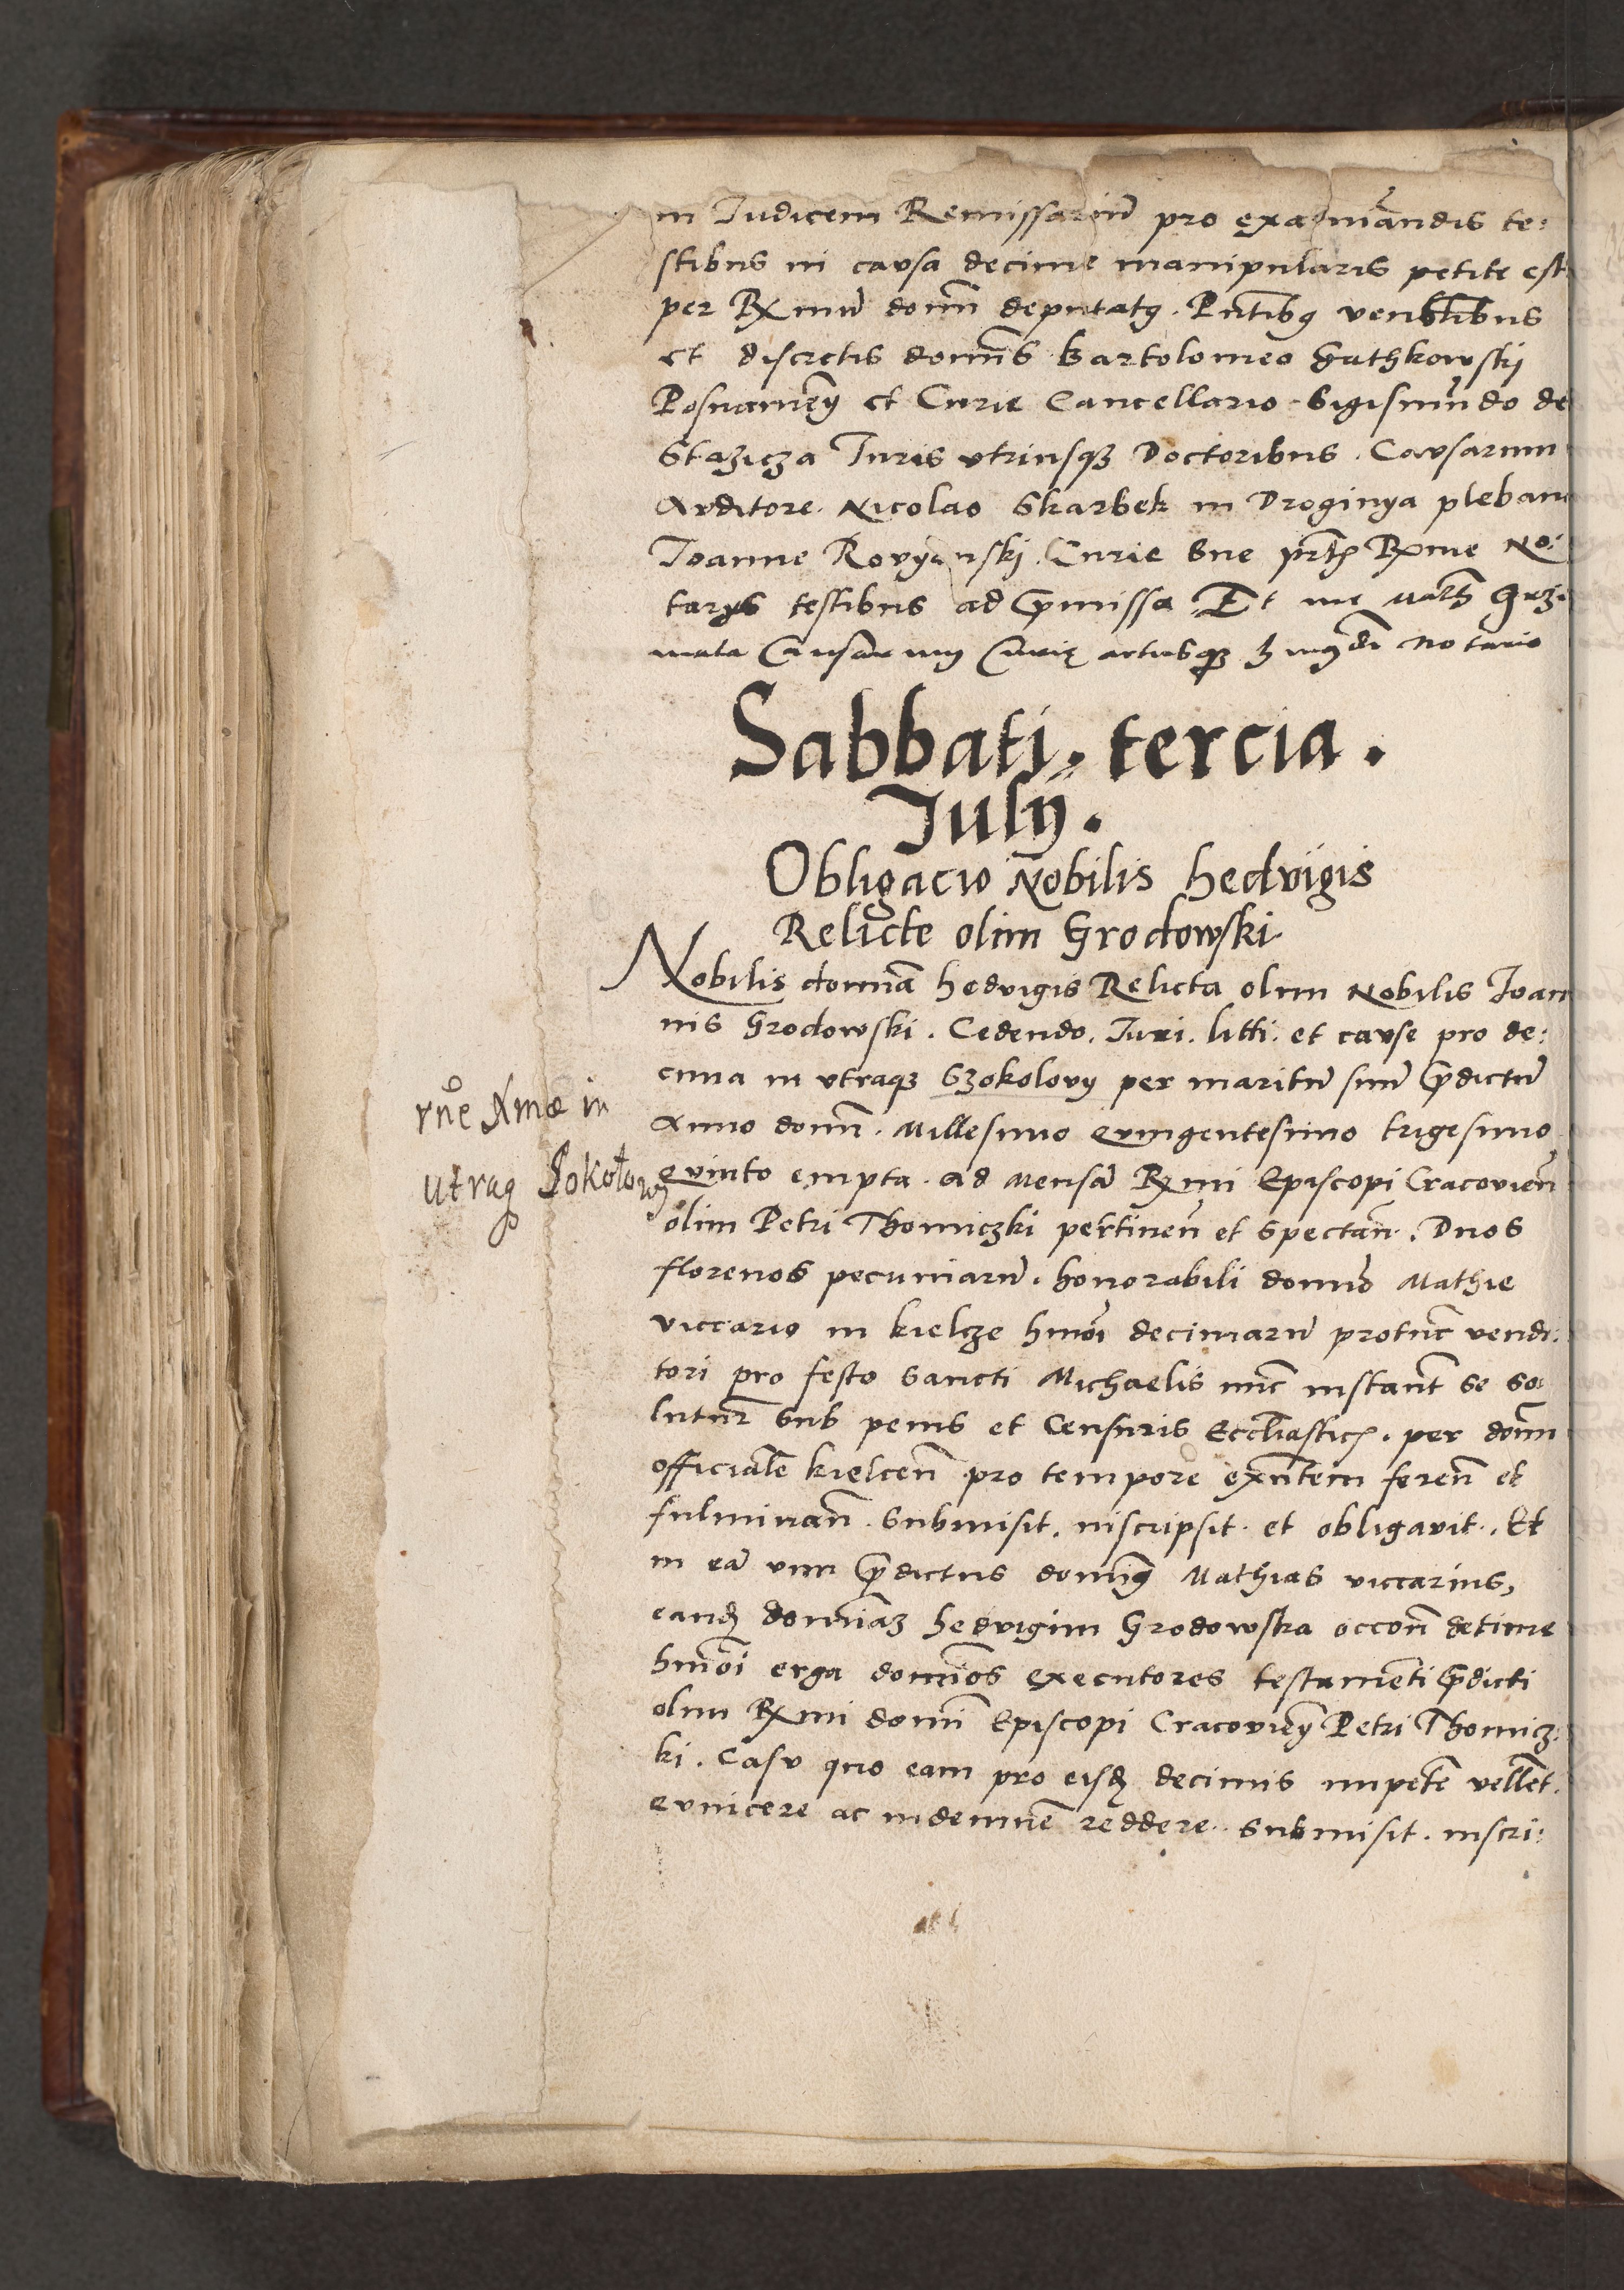 in Judicem Remissariũ pro examinãndis te:
stibus in causa decime manipularis petite est
per Rxmũ domñ deputatꝯ. Pñtibꝯ venbilibus
et discretis domĩs Bartolomeo Guthkowskij
Posnanieñ et Curie Cancellario Sigismũndo de
Stazicza Juris vtriusqꝫ Doctoribus. Causarum
Auditore. Nicolao Skarbek in Droginya pleban
Joanne Rovyenskj Curie sue Rxme No:
tarijs testibus ad p̃missa Et me
Causarum Curię actusqꝫ notario
Sabbati, tercia.
Julij.
Obligacio Nobilis Hedvigis
Relicte olim Grodowski
Nobilis domĩa Hedvigis Relicta olim Nobilis Joan
nis Grodowski. Cedendo. Juri. litti. et cause pro de:
cima in vtraqꝫ Szokolovy per maritũ suũ p̃dictũ
Anno domĩ. Millesimo quingentesimo trigesimo
quinto empta. ad Mensã Rxmi Episcopi Cracovieñ
olim Petri Thomiczki pertineñ et spectañ. Duos
florenos pecuniarũ. honorabili domĩo Mathie
viccario in Kielcze hmõi decimarũ protũc vendi:
tori pro festo sancti Michaelis nũc instañt se so
luturũ sub penis et Censuris Eccliasticꝭ. per domĩ
officialẽ Kielceñ pro tempore exñtem fereñ et
fulminañ. submisit. inscripsit. et obligavit. Et
in eã vim p̃dictus domĩꝯ Mathias viccarius,
eandẽ domĩaꝫ Hedvigim Grodowska occõñ decime
hmõi erga domĩos executores testamẽti p̃dicti
olim Rxmi domĩ Episcopi Cracovieñ Petri Thomicz:
ki. Casu quo eam pro eisdẽ decimis impetẽ vellẽt.
evincere ac indemnẽ reddere. submisit. inscri:
rñe Xmæ in
utraqꝫ Sokołowy